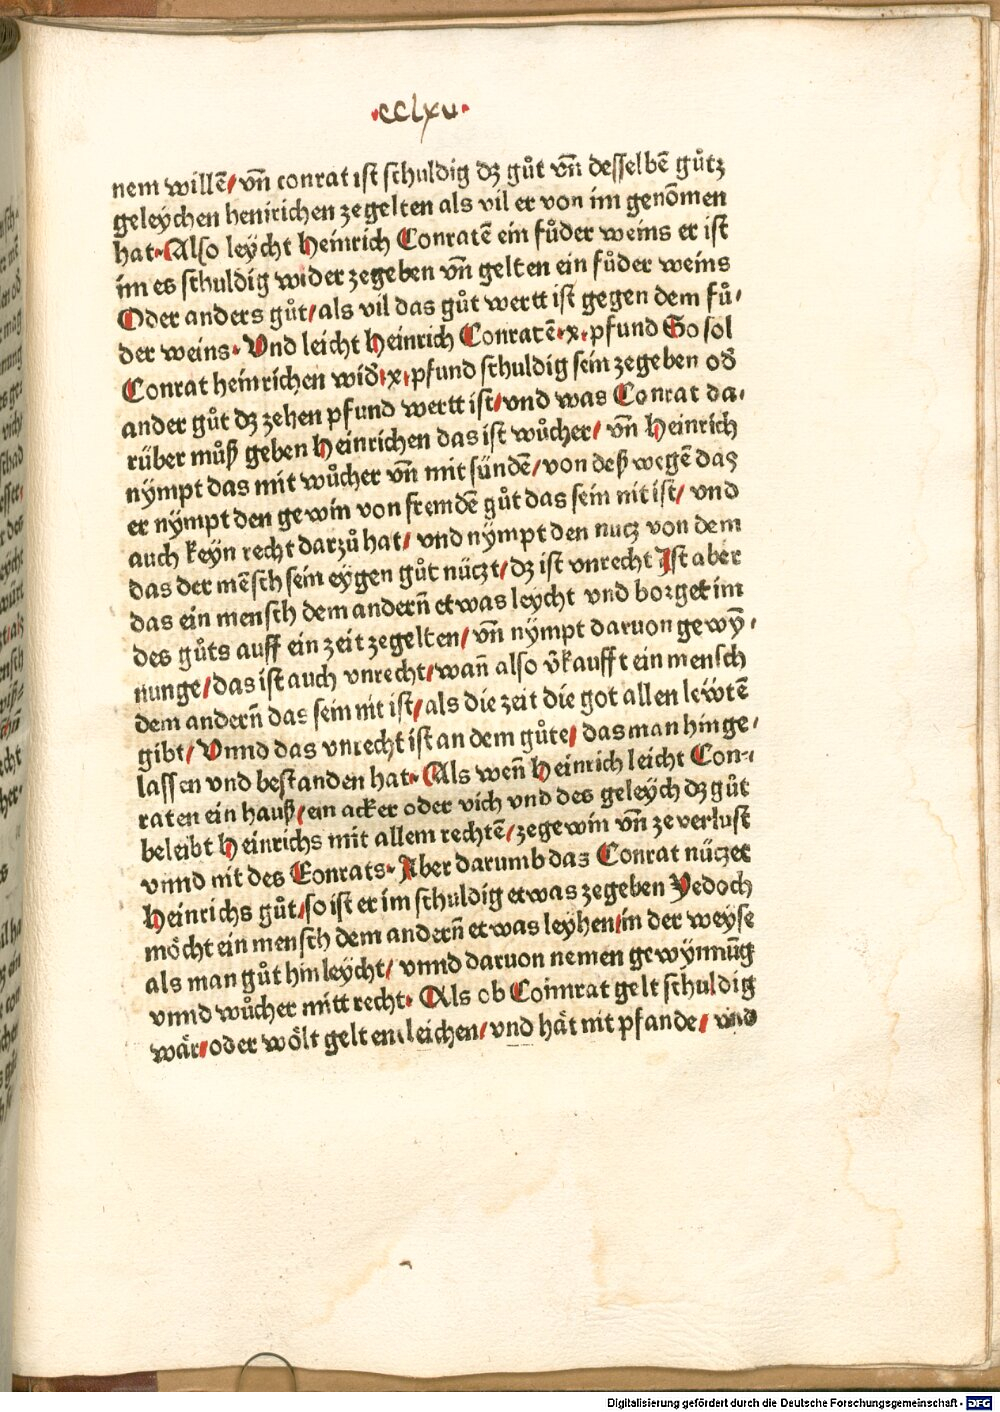 ·cclxv·
nem willē/ vn̄ conrat ist schuldig dz gůt vn̄ desselbē gůtz
geleychen heinrichen zegelten als vil er von im genōmen
hat· Also leycht Heinrich Conratē ein fůder weins er ist
im es schuldig wider zegeben vn̄ gelten ein fůder weins
Oder anders gůt/ als vil das gůt wertt ist gegen dem fů⸗
der weins· Vnd leicht Heinrich Conratē·x·pfund So sol
Conrat heinrichen wid̄·x·pfund schuldig sein zegeben od̄
ander gůt dz zehen pfund wertt ist/ vnd was Conrat da⸗
rüber můß geben Heinrichen das ist wůcher/ vn̄ Heinrich
nÿmpt das mit wůcher vn̄ mit sündē/ von deß wegē das
er nÿmpt den gewin von fremdē gůt das sein nit ist/ vnd
auch keÿn recht darzů hat/ vnd nÿmpt den nucz von dem
das der mēsch sein eÿgen gůt nüczt/ dz ist vnrecht Ist aber
das ein mensch dem andern̄ etwas leycht vnd borget im
des gůts auff ein zeit zegelten/ vn̄ nÿmpt daruon gewÿ⸗
nunge/ das ist auch vnrecht/ wan̄ also v̄kaufft ein mensch
dem andern̄ das sein nit ist/ als die zeit die got allen lewtē
gibt/ Vnnd das vnrecht ist an dem gůte/ das man hin ge⸗
lassen vnd bestanden hat· Als wen̄ Heinrich leicht Con⸗
raten ein hauß/ ein acker oder vich vnd des geleych dz gůt
beleibt Heinrichs mit allem rechtē/ zegewin vn̄ ze verlust
vnnd nit des Conrats· Aber darumb das Conrat nüczet
Heinrichs gůt/ so ist er im schuldig etwas zegeben Yedoch
möcht ein mensch dem andern̄ etwas leyhen/ in der weyse
als man gůt hin leÿcht/ vnnd daruon nemen gewÿnnūg
vnnd wůcher mitt recht· Als ob Coinrat gelt schuldig
wär/ oder wölt gelt entleichen/ vnd hät nit pfande/ vnd
Digitalisierung gefördert durch die Deutsche Forschungsgemeinschaft - DFG